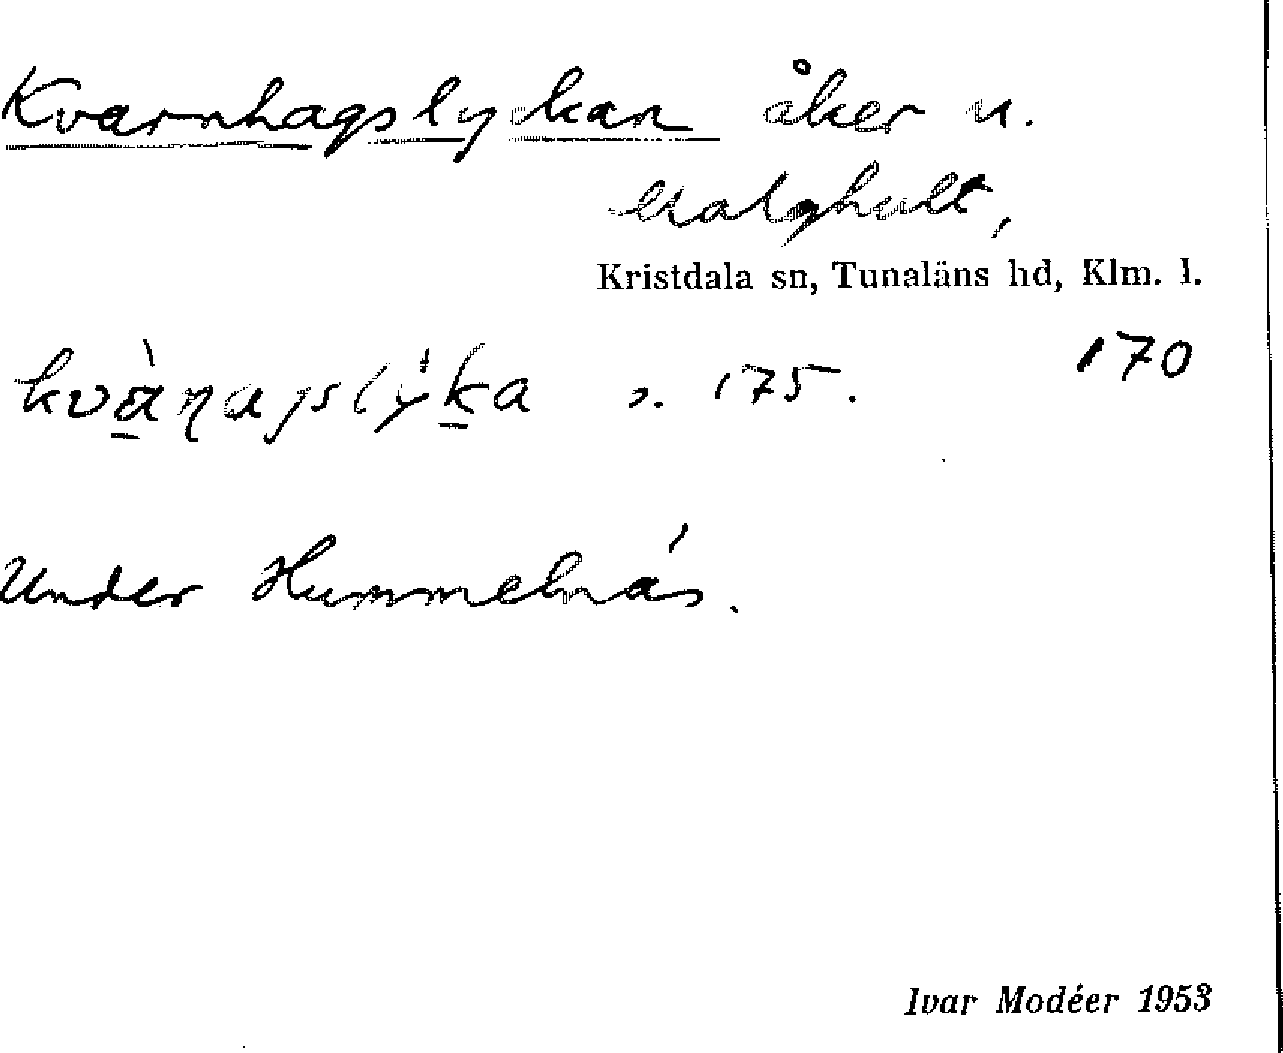 Kvarnhagslyckan åker u.
Kristdala sn, Tunaläns hd, Klm. l.
170
175.
Under Hummelnäs.
Ivar Modéer 1953